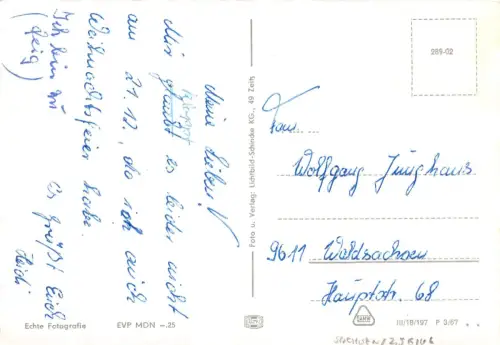 Meine Lieben!
Mir klappt es leider nicht
am 21.12., da ich auch
Weihnachtsfeier habe.
Ich bin zu
(feig)
Es grüßt Euch
Heidi
Echte Fotografie
EVP MDN –.25
Foto u. Verlag: Lichtbild-Schincke KG., 49 Zeitz
289-02
Fam.
Wolfgang Junghans
9611 Waldsachsen
Hauptstr. 68
III/18/197 P 3/67